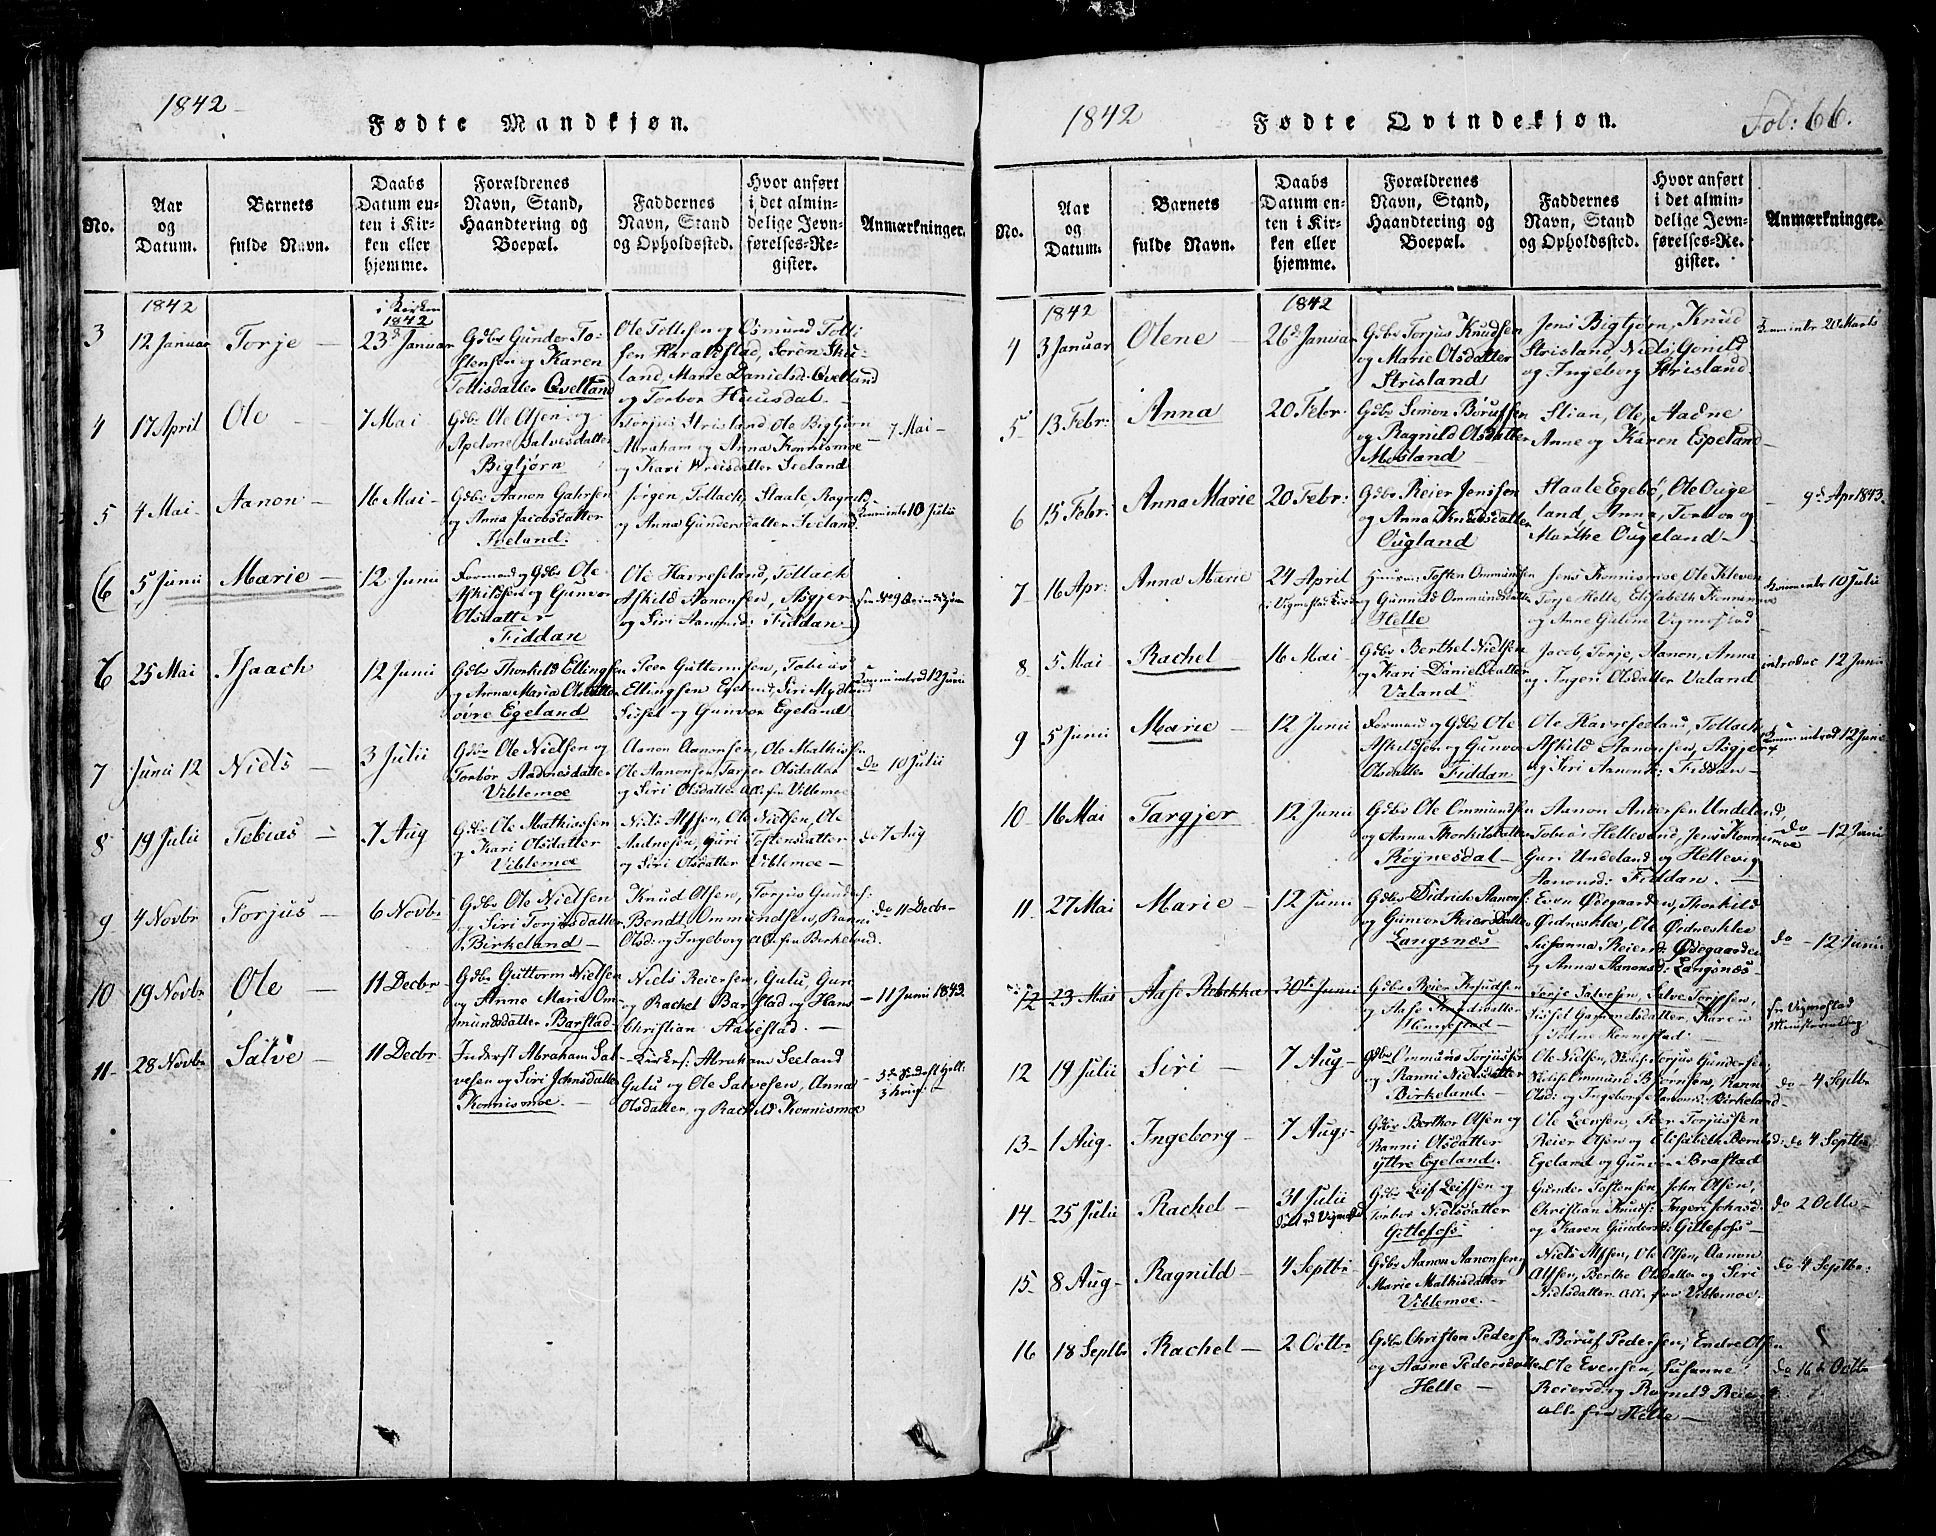 1842
Fødte Mandkjøn.
No.
Aar
og
Datum.
Barnets
fulde Navn.
Daabs
Datum en-
ten i Kir-
ken eller
hjemme.
Forældrenes
Navn, Stand,
Haandtering og
Boepæl.
Faddernes
Navn, Stand
og Opholdssted.
Hvor anført
i det almin-
delige Jevn-
førelses-Re-
gister.
Anmærkninger.
1842
i Kirken
1842
3
12 Januar
Torje –
23d Januar
Gdbr Gunder To-
stensen og Karen
Tollisdatter Qvelland
Ole Tollisen og Osmund Tolli
sen Haraldstad, Søren Sku-
land, Marie Danielsd. Qvelland
og Torbor Huusdal. –
4
17 April
Ole –
7 Mai
Gdbr Ole Olsen og
Apelone Salvesdatter
Bigtjørn
Torjus Strisland, Ole Bigtjørn
Abraham og Anna Konnismoe
og Kari Sveland
– 7 Mai –
5
4 Mai –
Aanon –
16 Mai –
Gdbr Aanon
og Anna Jacobsdatter
Sveland.
Jørgen, Tollach, Staale Ragnild
og Anna Gundersdatter Sveland
10 Julii
(6
5 Junii
Marie –
12 Junii
Formand og Gdbr Ole
Askildsen og Gunvor
Olsdatter
Fiddan
Ole Harreseland, Tollach
Askild Aanonsen, Asgjer
og Siri Aanonsd: Fiddan –)
6
25 Mai
Isaach
12 Junii
Gdbr Thorkild Ellingsen
og Anna Maria Olsdatter
øvre Egeland
Peer Guttormsen, Tobias
Ellingsen Siri
Sissel og Gunvor Egeland
introd 12 Junii
7
Junii 12
Niels –
3 Julii
Gdbr Ole Nielsen og
Torbør Aadnesdatter
Viblemoe
Aanon Aanonsen, Ole Mathissen
Ole Aanonsen, Tarjer Olsdatter
og Siri Olsdatter all: fra Viblemoe
do 10 Julii
8
19 Julii
Tobias –
7 Aug
Gdbr Ole Mathissen
og Kari Olsdatter
Viblemoe
Niels Alfsen, Ole Nielsen, Ole
Aadnesen, Guri Tostensdatter
og Siri Olsdatter Viblemoe –
do 7 Aug
9
4 Novbr
Torjus –
6 Novbr
Gdbr Ole Nielsen
og Siri Torjusdatter
Birkeland –
Knud Olsen, Torjus Gunders:
Bendt Ommundsen, Ranni
Olsd: og Ingeborg all: fra Birkeland.
do 11 Decbr –
10
19 Novbr
Ole –
11 Decbr
Gdbr Guttorm Nielsen
og Anne Maria Om-
mundsdatter Barstad
Niels Reiersen, Gulu, Guri
og Rachel Barstad og Hans
Christian Aavestad. –
– 11 Juni 1843.
11 –
28 Novbr
Salve –
11 Decbr
Inderst Abraham Sal-
vesen og Siri Johnsdatter
Konnismoe. –
Kirkes: Abraham Sveland
Gulu og Ole Salvesen, Anna
Olsdatter, og Rachild Konnismoe
1842
Fødte Qvindekjøn.
Fol: 66.
No.
Aar
og
Datum.
Barnets
fulde Navn.
Daabs
Datum en-
ten i Kir-
ken eller
hjemme.
Forældrenes
Navn, Stand,
Haandtering og
Boepæl.
Faddernes
Navn, Stand
og Opholdssted.
Hvor anført
i det almin-
delige Jevn-
førelses-Re-
gister.
Anmærkninger.
1842
1842
4
3 Januar
Olene –
26d Januar
Gdbr Torjus Knudsen
og Marie Olsdatter
Strisland
Jens Bigtjørn, Knud
Strisland, Niels, Gonild
og Ingeborg Strisland.
20 Marts
5
13 Febr:
Anna
20 Febr:
Gdbr Simon Børufsen
og Ragnild Olsdatter
Mosland
Stian, Ole, Aadne
Anne og Karen Espeland –
6
15 Febr:
Anna Marie
20 Febr:
Gdbr Reier Jenssen
og Anna Knudsdatter
Ougland
Staale Egebø, Ole Ouge
land, Anna, Torbor og
Marthe Ougeland –
– 9d Apr 1843.
7
16 Apr:
Anna Marie
24 April
i Vigmostad Kirke
Tosten Ommundsen
og Gunnild Ommundsdatter
Helle
Jens Konnismoe, Ole Kleven
Torje Helle, Elisabeth Konnismoe
og Anne Gulene Vigmostad –
10 Julii
8
5 Mai
Rachel
16 Mai
Gdbr Berthel Nielsen
og Kari Danielsdatter
Valand
Jacob, Torje, Aanon, Anna
og Ingeri Olsdatter Valand
introduc 12 Junii
9
5 Junii
Marie –
12 Junii
Formand og Gdbr Ole
Askildsen og Gunvor
Olsdatter Fiddan
Ole Harreseland, Tollach
Askild Aanonsen, Asgjer
og Siri Aanonsd: Fiddan –
introd 12 Junii
10
16 Mai
Targjer
12 Junii
Gdbr Ole Ommundsen
og Anna Thorkilsdatter
Røynesdal –
Aanon Andersen Undeland,
Tobias Hellevand, Jens Konnismoe
Guri Undeland og Hellevig
Aanonsd: Fiddan. –
do – 12 Junii
11
27 Mai
Marie –
12 Junii
Gdbr Didrich Aanons:
og Gunvor Reiersdatter
Langsnæs
Even Ødegaarden, Thorkild
Ørdneskler, Ole Ørdneskler
Susanna Reiersd: Ødegaarden
og Anna Aanonsd: Langsnæs –
do – 12 Junii
12
23 Mai
Aase Rebekka
30te Junii
Gdbr Reier Knudsen
og Aase
Hennestad –
Terje Salvesen, Salve Torjesen,
Sissel Gammelsdatter, Karen
og Todne Konnestad –
fra Vigmostad
Ministerialbog
12
19 Julii
Siri –
7 Aug –
Gdbr Ommund Torjussen
og Ranni Nielsdatter
Birkeland. –
Ole Nielsen, Torjus Gundersen,
Ommund Bjørnsen, Ranni
Olsd: og Ingeborg Aanonsd: Birkeland –
do – 4 Septbr
13 –
1 Aug.
Ingeborg –
7 Aug –
Gdbr Berthor Olsen og
Ranni Olsdatter
yttre Egeland.
Ole Leensen, Peer Torjussen
Reier Olsen og Elisabeth Berntsd:
Egeland og Gunvor Brastad
do 4 Septbr
14 –
25 Julii
Rachel –
31 Julii
Gdbr Leif Leifsen og
Torbor Nielsdatter
Gittlefoss
Gunder Tostensen, John Olsen,
Christian Knuds: Ingeri Johnsd
og Karen Gundersd: Gittlefoss –
do 2 Octbr –
15 –
8 Aug –
Ragnild –
4 Septbr –
Gdbr Aanon Aanonsen og
Marie Mathisdatter
Viblemoe. –
Niels Alfsen, Ole Olsen, Aanon
Alfsen, Berthe Olsdatter og Siri
Nielsdatter all: fra Viblemoe.
do 4 Septbr:
16
18 Septbr
Rachel –
2 Octbr –
Gdbr Christen Pedersen
og Aasne Pedersdatter
Helle –
Børuf Pedersen, Endre Olsen
Ole Evensen, Susanne
Reiersd. og Ragnild Reiersd.
alle fra Helle –
do 16d Octbr